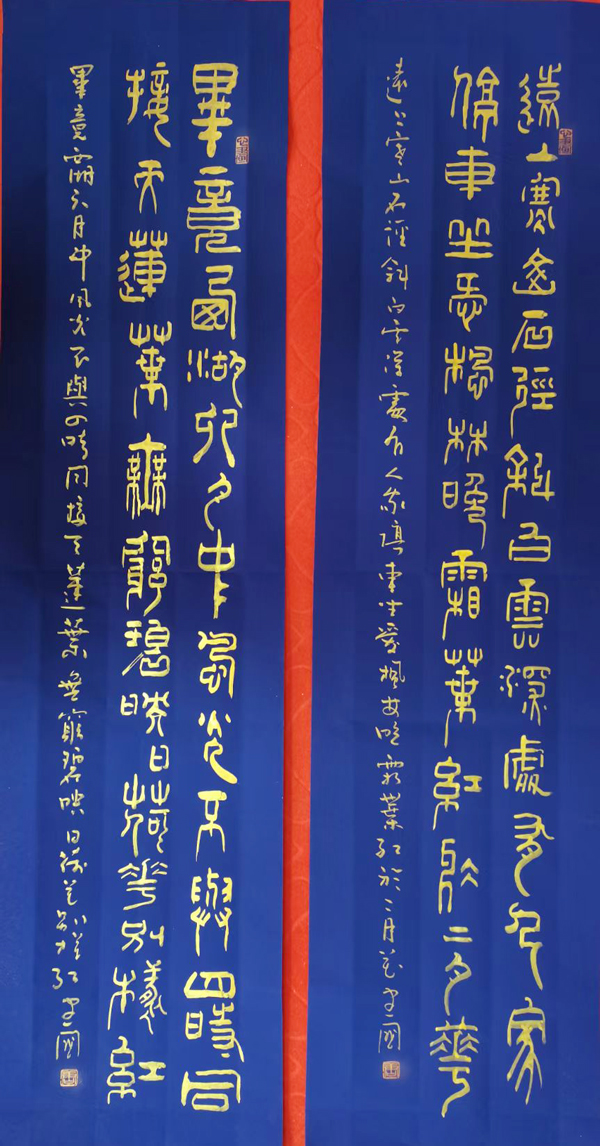 遠上寒山石徑斜白雲深處有人家
停車坐愛楓林晚霜葉紅於二月華
遠上寒山石徑斜白雲深處有人家停車坐愛楓林晚霜葉紅於二月花國
畢竟西湖六月中風光不與四時同
接天蓮葉無窮碧映日荷華別樣紅
畢竟西湖六月中風光不與四時同接天蓮葉無窮碧映日荷花別樣紅國